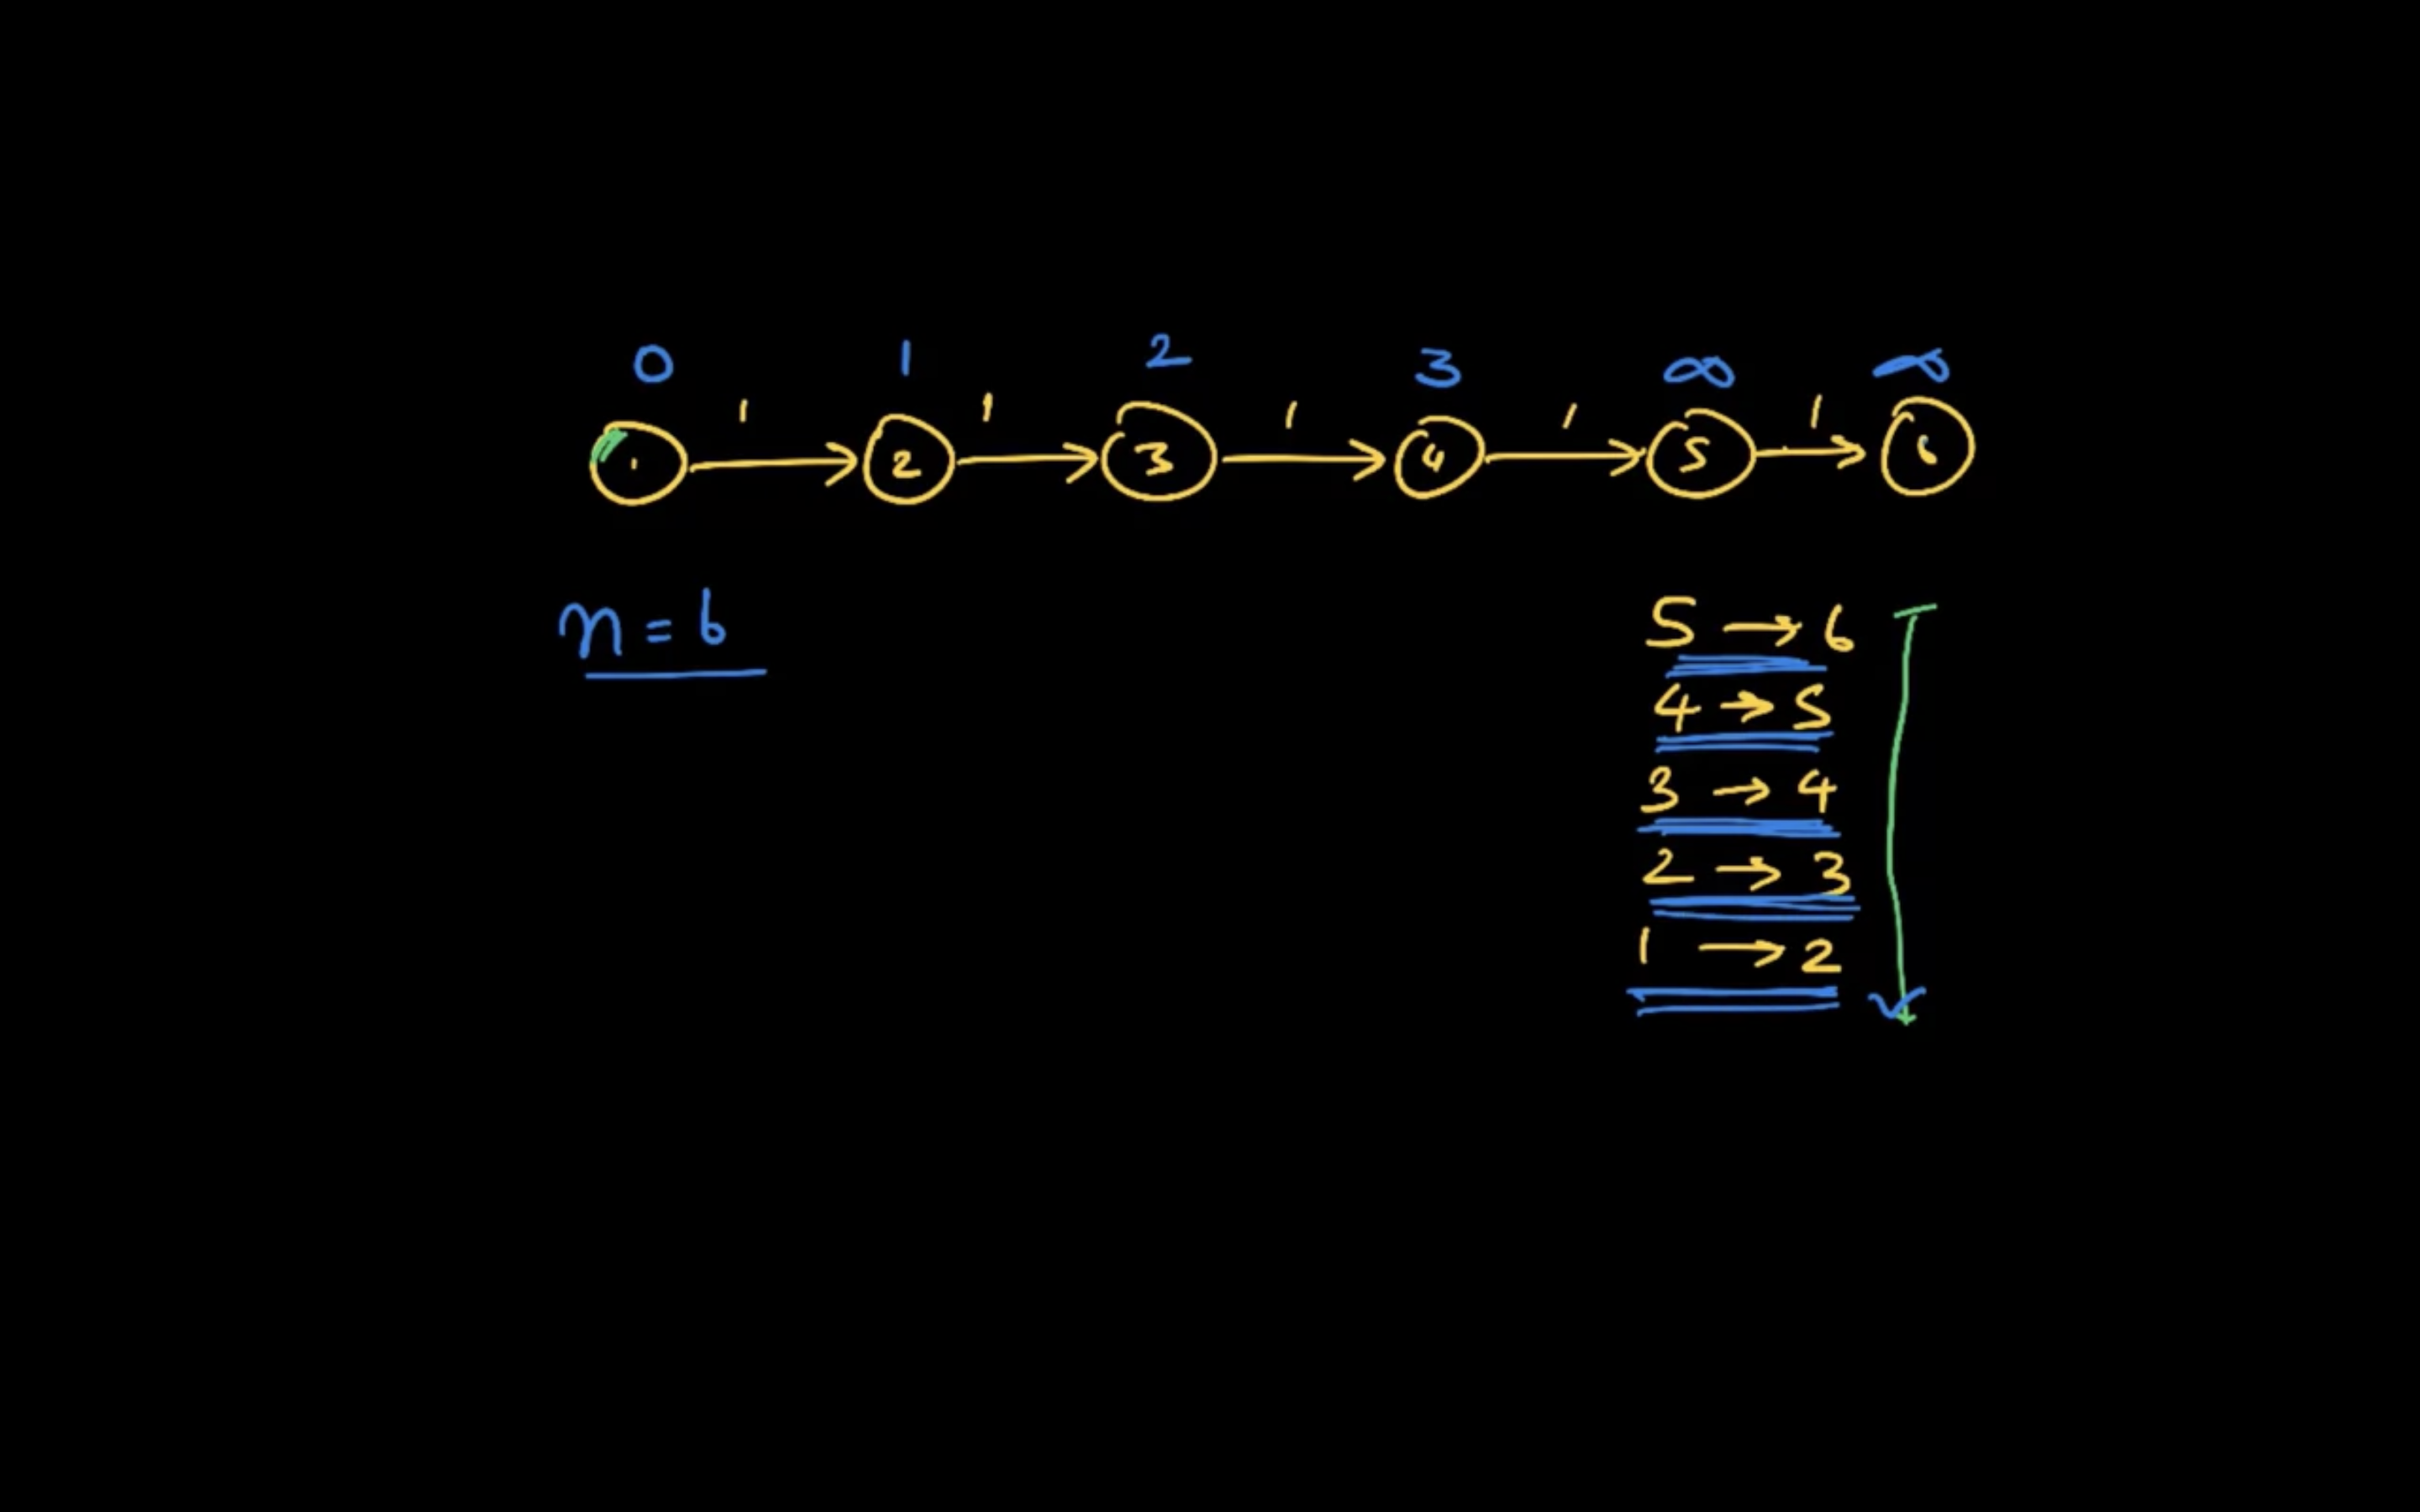 0 1 2 3 ∞ ∞
1 1 1 1 1
1 2 3 4 5 6
n = 6
5 → 6
4 → 5
3 → 4
2 → 3
1 → 2